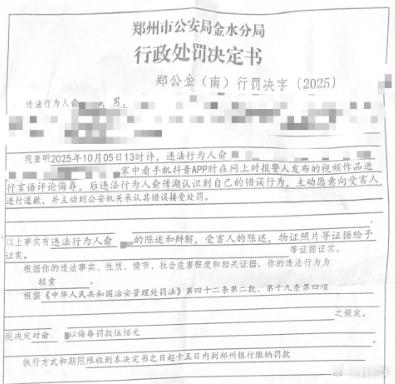 郑州市公安局金水分局
行政处罚决定书
郑公金(南)行罚决字〔2025〕
违法行为人俞 ,男,
现查明2025年10月05日13时许,违法行为人俞
家中看手机抖音APP时在网上对报警人发布的视频作品进
行言语评论侮辱,后违法行为人俞传湖认识到自己的错误行为,主动愿意向受害人
进行道歉,并主动到公安机关承认其错误接受处罚。
以上事实有违法行为人俞 的陈述和辩解,受害人的陈述,物证照片等证据给予
证实。 等证据证实。
根据你的违法事实、性质、情节、社会危害程度和相关证据,你的违法行为为
较重
根据《中华人民共和国治安管理处罚法》第四十二条第二款、第十九条第四项
之规定,
现决定对俞 以侮辱罚款伍佰元
执行方式和期限限收到本决定书之日起十五日内到郑州银行缴纳罚款